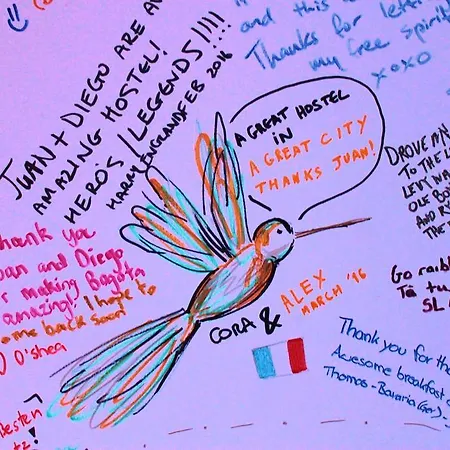 JUAN + DIEGO ARE
AMAZING HOSTEL!
HEROS/LEGENDS!!!!
HARRY ENGLAND FEB 2016
and this
Thanks for
my free
xoxo
A GREAT HOSTEL
IN
A GREAT CITY
THANKS JUAN!
DROVE MY
TO THE
OLE
AND
THE
Thank you
and Diego
making Bogota
amazing! I hope to
back soon!
O'shea
CORA & ALEX
MARCH '16
Go
Tá tu
SL
Thank you for
Awesome breakfast
Thomas - Bavaria (Ger)
Besten